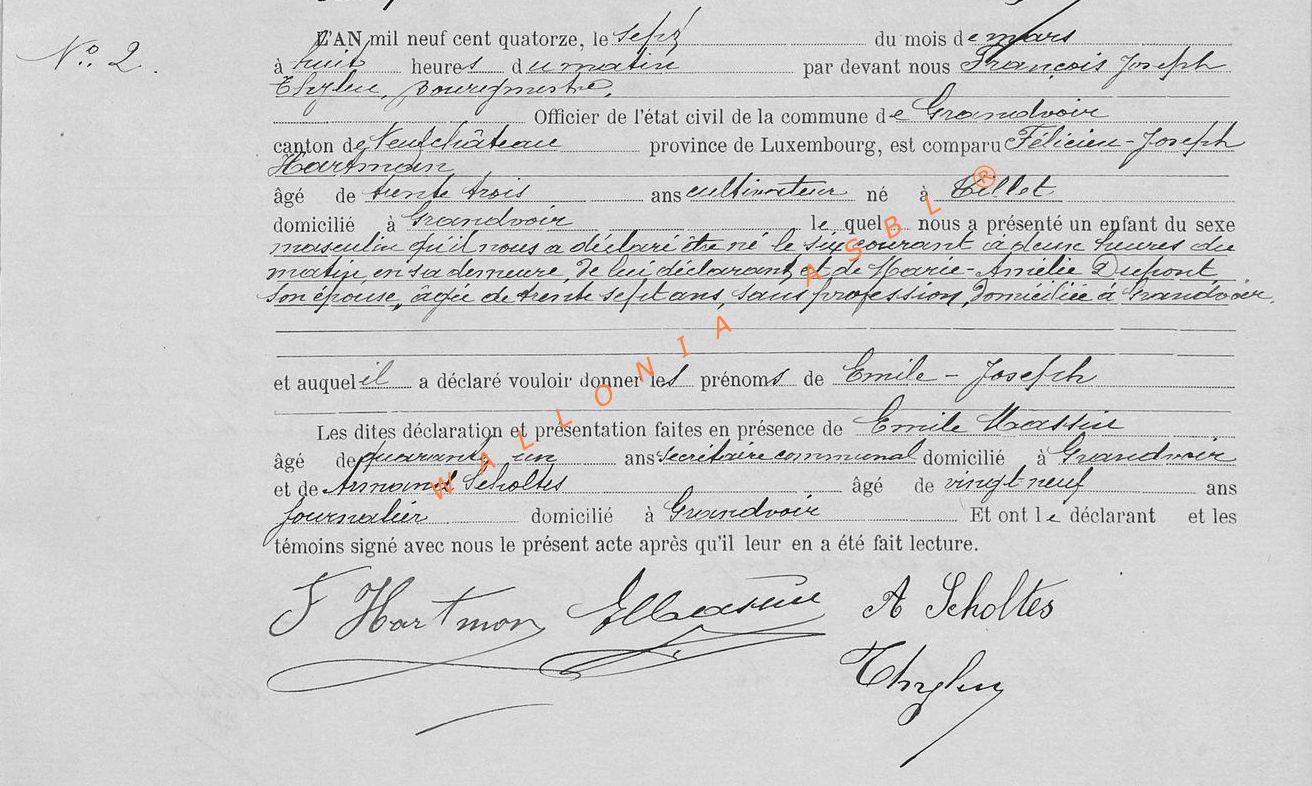 N° 2.
L'AN mil neuf cent quatorze, le sept du mois de mars
à huit heures du matin par devant nous François Joseph
bourgmestre,
Officier de l'état civil de la commune de Grandvoir
canton de Neufchâteau province de Luxembourg, est comparu Félicien-Joseph
Hartman
âgé de trente trois ans cultivateur né à Tillet
domicilié à Grandvoir le quel nous a présenté un enfant du sexe
masculin qu'il nous a déclaré être né le six courant à deux heures du
matin en sa demeure de lui déclarant et de Marie-Amélie Dupont
son épouse, âgée de trente sept ans, sans profession, domiciliée à Grandvoir.
et auquel il a déclaré vouloir donner les prénoms de Emile-Joseph
Les dites déclaration et présentation faites en présence de Emile Massin
âgé de quarante un ans secrétaire communal domicilié à Grandvoir
et de Armand Scholtes âgé de vingt neuf ans
journalier domicilié à Grandvoir Et ont le déclarant et les
témoins signé avec nous le présent acte après qu'il leur en a été fait lecture.
F Hartman EMassin A Scholtes
WALLONIA ASBL ®